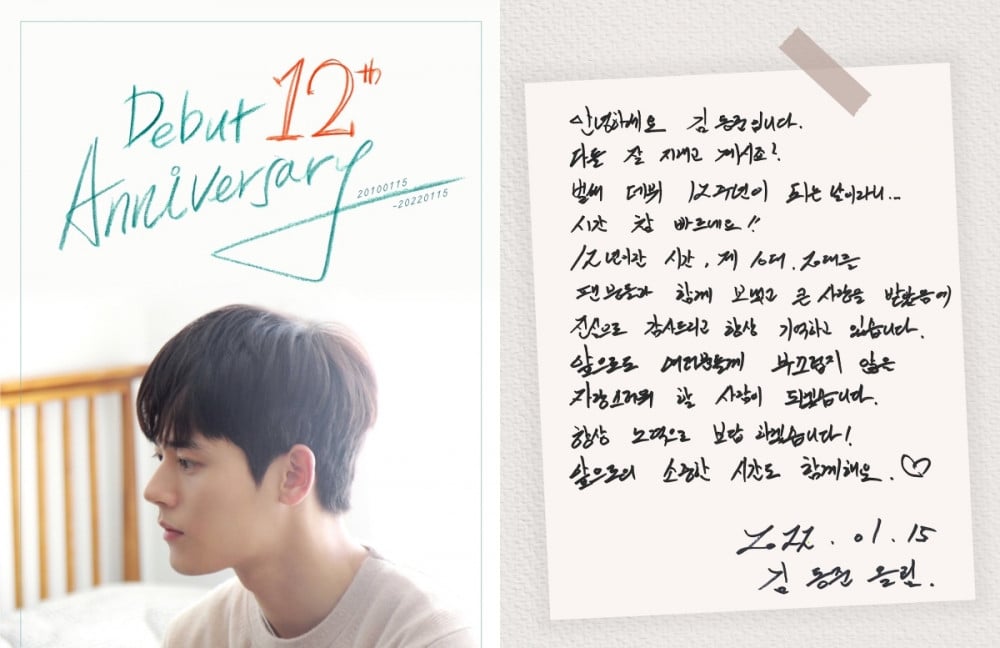 Debut 12th
Anniversary
20100115
-20220115
안녕하세요 김동준입니다.
다들 잘 지내고 계시죠?
벌써 데뷔 12주년이 되는 날이라니...
시간 참 빠르네요!!
12년이란 시간, 제 10대, 20대를
팬분들과 함께 보냈고 큰 사랑을 받았음에
진심으로 감사드리고 항상 기억하고 있습니다.
앞으로도 여러분들께 부끄럽지 않은
자랑스러워 할 사람이 되겠습니다.
항상 노력으로 보답 하겠습니다!
앞으로의 소중한 시간도 함께해요.
2022.01.15
김동준 올림.